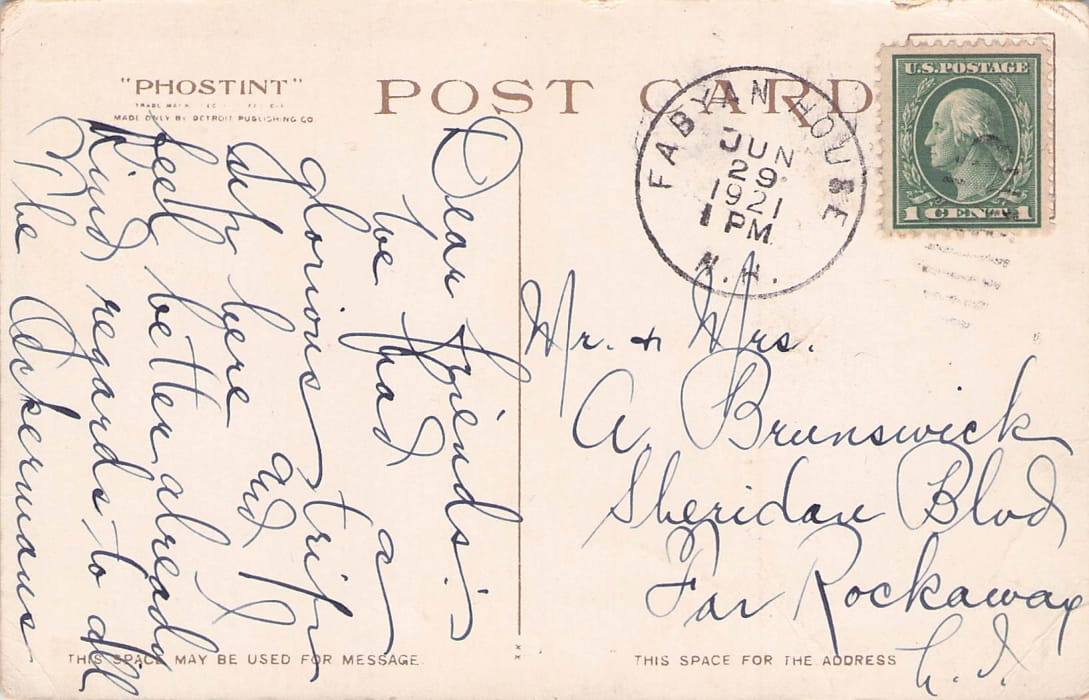 "PHOSTINT"
MADE ONLY BY DETROIT PUBLISHING CO.
POST CARD
FABYAN HOUSE
JUN
29
1921
1 PM
N.H.
U.S. POSTAGE
1 CENT 1
Dear friends:
We had a
glorious trip
up here and I
feel better already
Kind regards to all
The Ackermans
Mr. & Mrs.
A. Brunswick
Sheridan Blvd
Far Rockaway
L. I.
THIS SPACE MAY BE USED FOR MESSAGE
THIS SPACE FOR THE ADDRESS